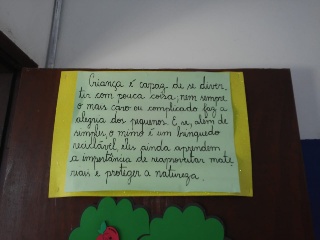 Criança é capaz de se diver,
tir com pouca coisa, nem sempre
o mais caro ou complicado faz a
alegria dos pequenos. E se, além de
simples, o mimo é um brinquedo
reciclável, eles ainda aprendem
a importância de reaproveitar mate
riais e proteger a natureza.